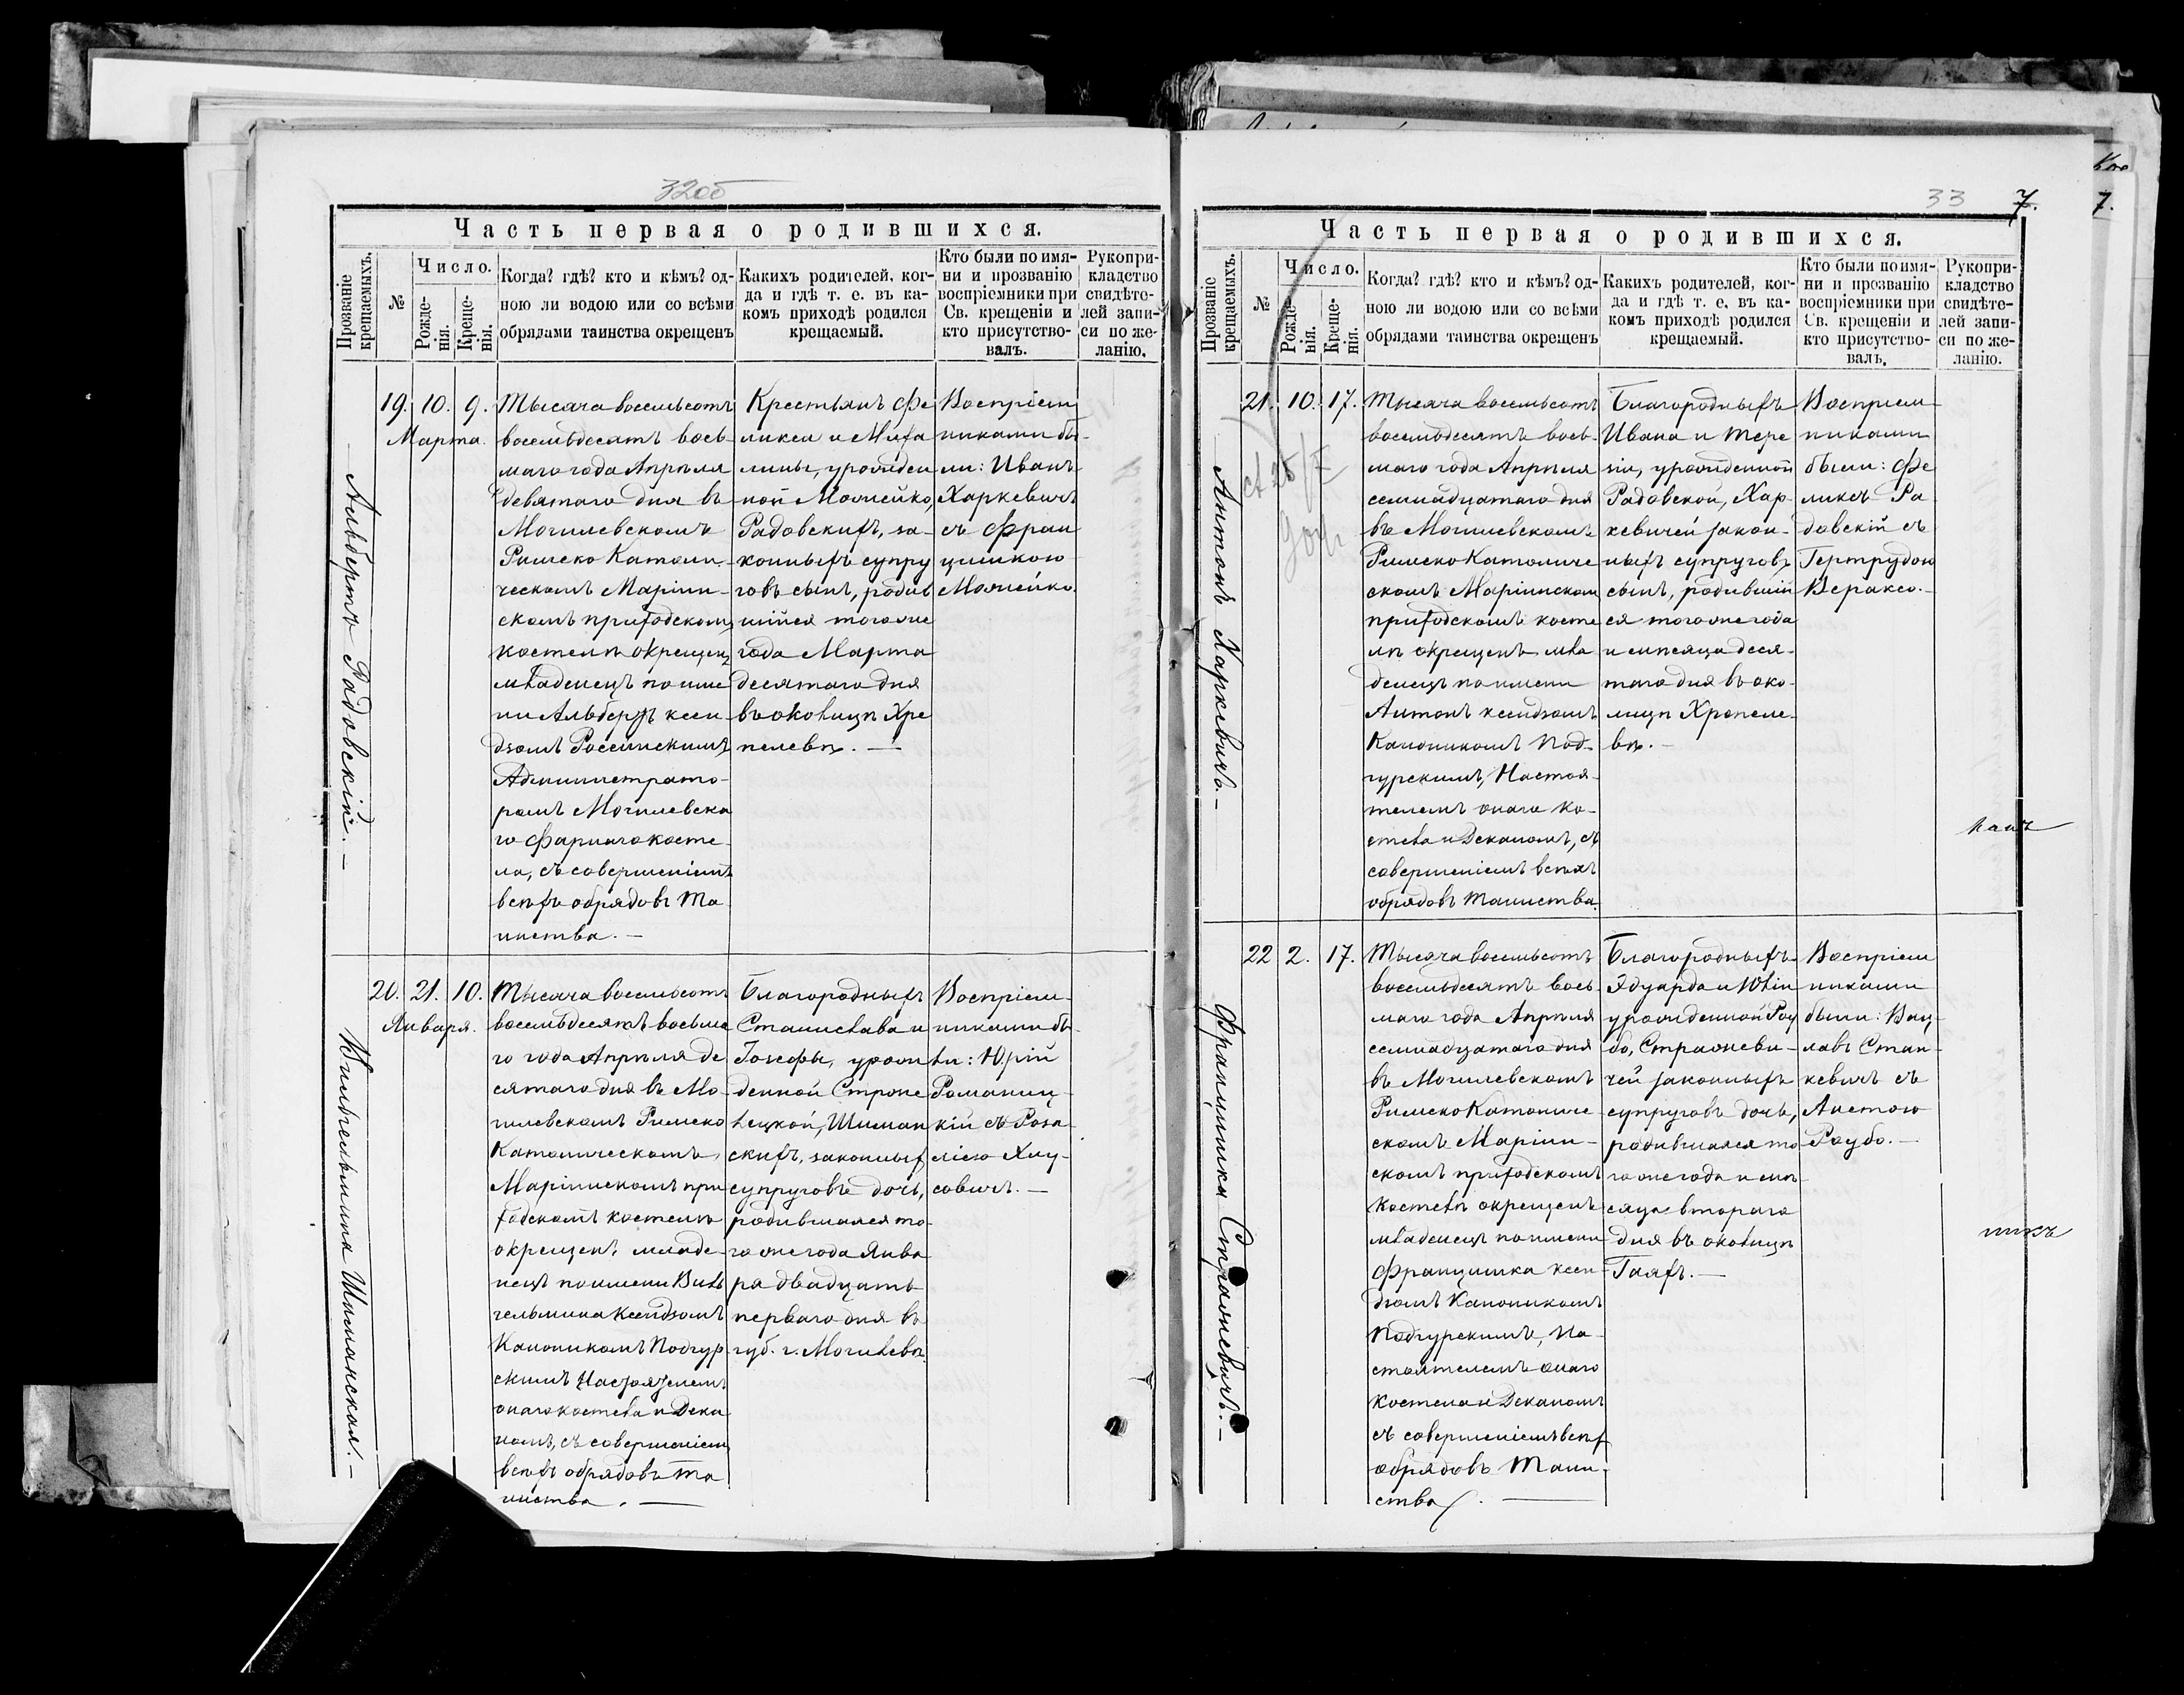 32об
Часть первая о родившихся.
Прозваніе крещаемыхъ.
№
Число.
Рожде-
нія.
Креще-
нія.
Когда? гдѣ? кто и кѣмъ? од-
ною ли водою или со всѣми
обрядами таинства окрещенъ
Какихъ родителей, ког-
да и гдѣ т. е. въ ка-
комъ приходѣ родился
крещаемый.
Кто были по имя-
ни и прозванію
воспріемники при
Св. крещеніи и
кто присутство-
валъ.
Рукопри-
кладство
свидѣте-
лей запи-
си по же-
ланію.
Альбертъ Радовскій. —
19. 10. 9.
Марта.
Тысяча восемьсотъ
восемьдесятъ вось-
маго года Апрѣля
девятаго дня въ
Могилевскомъ
Римско Католи-
ческомъ Маріин-
скомъ приходскомъ
костелѣ окрещенъ
младенецъ по име
ни Альбертъ ксен
дзомъ Россинскимъ
Администрато-
ромъ Могилевска
го Фарнаго косте-
ла, съ совершеніемъ
всѣхъ обрядовъ Та
инства. —
Крестьянъ Фе
ликса и Миха
лины, урожден
ной Можейко,
Радовскихъ, за-
конныхъ супру
говъ сынъ, родив
шійся тогоже
года Марта
десятаго дня
въ околицѣ Хре
пелевѣ. —
Воспріем
никами бы-
ли: Иванъ
Харкевичъ
съ Фран
цишкою
Можейко.
Вильгельмина Шиманская. —
20. 21. 10.
Января.
Тысяча восемьсотъ
восемьдесятъ восьма
го года Апрѣля де
сятаго дня въ Мо-
гилевскомъ Римско
Католическомъ
Маріинскомъ при
ходскомъ костелѣ
окрещенъ младе-
нецъ по имени Виль
гельмина ксендзомъ
Каноникомъ Подгур-
скимъ Настоятелемъ
онаго костела и Дека
номъ, съ совершеніемъ
всѣхъ обрядовъ Та
инства. —
Благородныхъ
Станислава и
Іозефы, урож
денной Стропе
лецкой, Шиман
скихъ, законных
супруговъ дочь,
родившаяся то-
го же года Янва
ра двадцать
перваго дня въ
губ. г. Могилевѣ.
Воспріем-
никами бы-
ли: Юрій
Романиц-
кій съ Роза-
ліею Хму-
совичъ. —
33
7.
7.
Часть первая о родившихся.
Прозваніе крещаемыхъ.
№
Число.
Рожде-
нія.
Креще-
нія.
Когда? гдѣ? кто и кѣмъ? од-
ною ли водою или со всѣми
обрядами таинства окрещенъ
Какихъ родителей, ког-
да и гдѣ т. е. въ ка-
комъ приходѣ родился
крещаемый.
Кто были по имя-
ни и прозванію
воспріемники при
Св. крещеніи и
кто присутство-
валъ.
Рукопри-
кладство
свидѣте-
лей запи-
си по же-
ланію.
Антонъ Харкевичъ. —
21. 10. 17.
Тысяча восемьсотъ
восемьдесятъ вось-
маго года Апрѣля
семнадцатаго дня
въ Могилевскомъ
Римско Католиче
скомъ Маріинском
приходскомъ косте
лѣ окрещенъ мла
денецъ по имени
Антонъ ксендзомъ
Каноникомъ Под-
гурскимъ, Настоя-
телемъ онаго ко-
стела и Деканомъ, съ
совершеніемъ всѣхъ
обрядовъ Таинства.
Благородныхъ
Ивана и Тере
зіи, урожденной
Радовской, Хар-
кевичей закон-
ныхъ супруговъ
сынъ, родившій
ся тогоже года
и мѣсяца деся-
таго дня въ око-
лицѣ Хропеле-
вѣ. —
Воспріем
никами
были: Фе
ликсъ Ра
довскій съ
Гертрудою
Вераксо. —
Францишка Стражевичъ. —
22 2. 17.
Тысяча восемьсотъ
восемьдесятъ вось
маго года Апрѣля
семнадцатаго дня
въ Могилевскомъ
Римско Католиче
скомъ Маріин-
скомъ приходскомъ
костелѣ окрещенъ
младенецъ по имени
Францишка ксен
дзомъ Каноникомъ
Подгурскимъ, На-
стоятелемъ онаго
костела и Деканомъ
съ совершеніемъ всѣх
обрядовъ Таин-
ства. —
Благородныхъ
Эдуарда и Юліи
урожденной Роу
бо, Стражеви-
чей законныхъ
супруговъ дочь,
родившаяся то
го же года и мѣ
сяца втораго
дня въ околицѣ
Гаяхъ. —
Воспріем
никами
были: Вац
лавъ Стан-
кевичъ съ
Анетою
Роубо. —